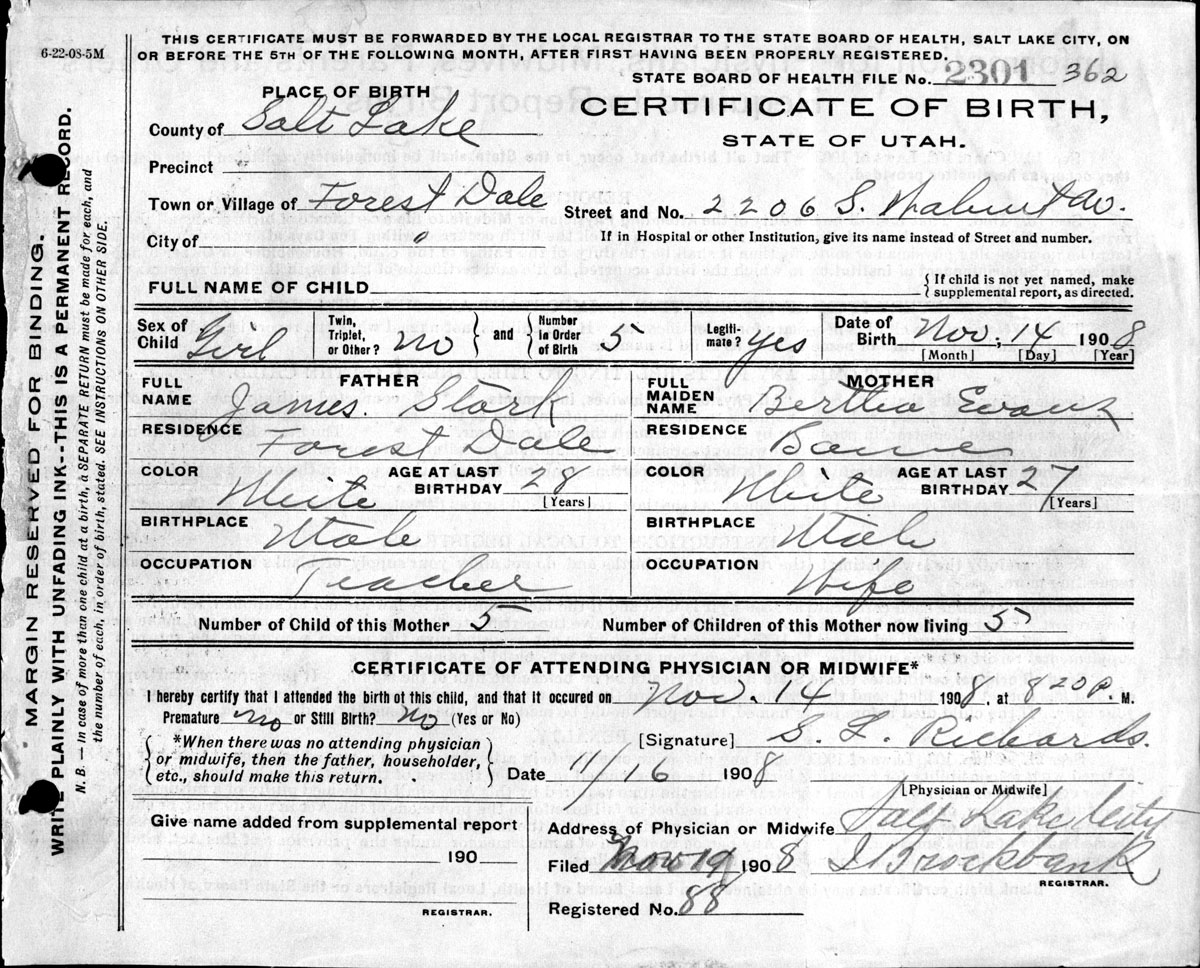 6-22-08-5M
THIS CERTIFICATE MUST BE FORWARDED BY THE LOCAL REGISTRAR TO THE STATE BOARD OF HEALTH, SALT LAKE CITY, ON
OR BEFORE THE 5TH OF THE FOLLOWING MONTH, AFTER FIRST HAVING BEEN PROPERLY REGISTERED.
STATE BOARD OF HEALTH FILE No. 2301 362
PLACE OF BIRTH
CERTIFICATE OF BIRTH,
STATE OF UTAH.
County of Salt Lake
Precinct
Town or Village of Forest Dale Street and No. 2206 S. Walnut Av.
City of " If in Hospital or other Institution, give its name instead of Street and number.
FULL NAME OF CHILD { If child is not yet named, make
supplemental report, as directed.
Sex of Child Girl Twin, Triplet, or Other? No } and { Number in Order of Birth 5 Legiti-mate? Yes Date of Birth Nov. 14 1908
[Month] [Day] [Year]
FATHER MOTHER
FULL NAME James. Stark FULL MAIDEN NAME Bertha Evans
RESIDENCE Forest Dale RESIDENCE
COLOR White AGE AT LAST BIRTHDAY 28 [Years] COLOR White AGE AT LAST BIRTHDAY 27 [Years]
BIRTHPLACE Utah BIRTHPLACE Utah
OCCUPATION Teacher OCCUPATION Wife
Number of Child of this Mother 5 Number of Children of this Mother now living 5
CERTIFICATE OF ATTENDING PHYSICIAN OR MIDWIFE*
I hereby certify that I attended the birth of this child, and that it occured on Nov. 14 1908, at P. M.
Premature No or Still Birth? No (Yes or No)
{ *When there was no attending physician
or midwife, then the father, householder,
etc., should make this return. }
[Signature] S. L. Richards.
Date 16 1908
[Physician or Midwife]
Give name added from supplemental report
190
REGISTRAR.
Address of Physician or Midwife Salt Lake City
Filed Nov 19 1908 Brockbank
REGISTRAR.
Registered No. 88
MARGIN RESERVED FOR BINDING.
WRITE PLAINLY WITH UNFADING INK--THIS IS A PERMANENT RECORD.
N. B. — In case of more than one child at a birth, a SEPARATE RETURN must be made for each, and
the number of each, in order of birth, stated. SEE INSTRUCTIONS ON OTHER SIDE.